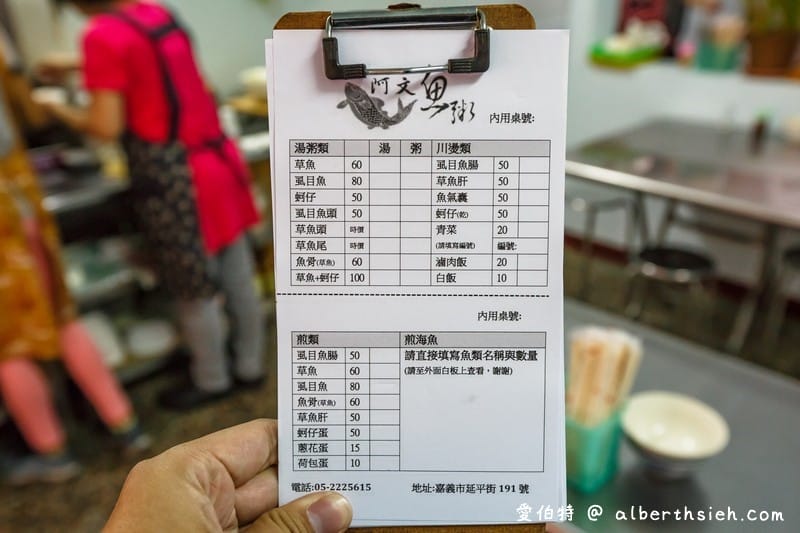 阿文魚粥
內用桌號:
湯粥類 湯 粥 川燙類
草魚 60 虱目魚腸 50
虱目魚 80 草魚肝 50
蚵仔 50 魚氣囊 50
虱目魚頭 50 蚵仔(乾) 50
草魚頭 時價 青菜 20
草魚尾 時價 (請填寫編號) 編號:
魚骨(草魚) 60 滷肉飯 20
草魚+蚵仔 100 白飯 10
內用桌號:
煎類 煎海魚
虱目魚腸 50 請直接填寫魚類名稱與數量
草魚 60 (請至外面白板上查看，謝謝)
虱目魚 80
魚骨(草魚) 60
草魚肝 50
蚵仔蛋 50
蔥花蛋 15
荷包蛋 10
電話:05-2225615 地址:嘉義市延平街 191 號
愛伯特 @ albertHsieh.com